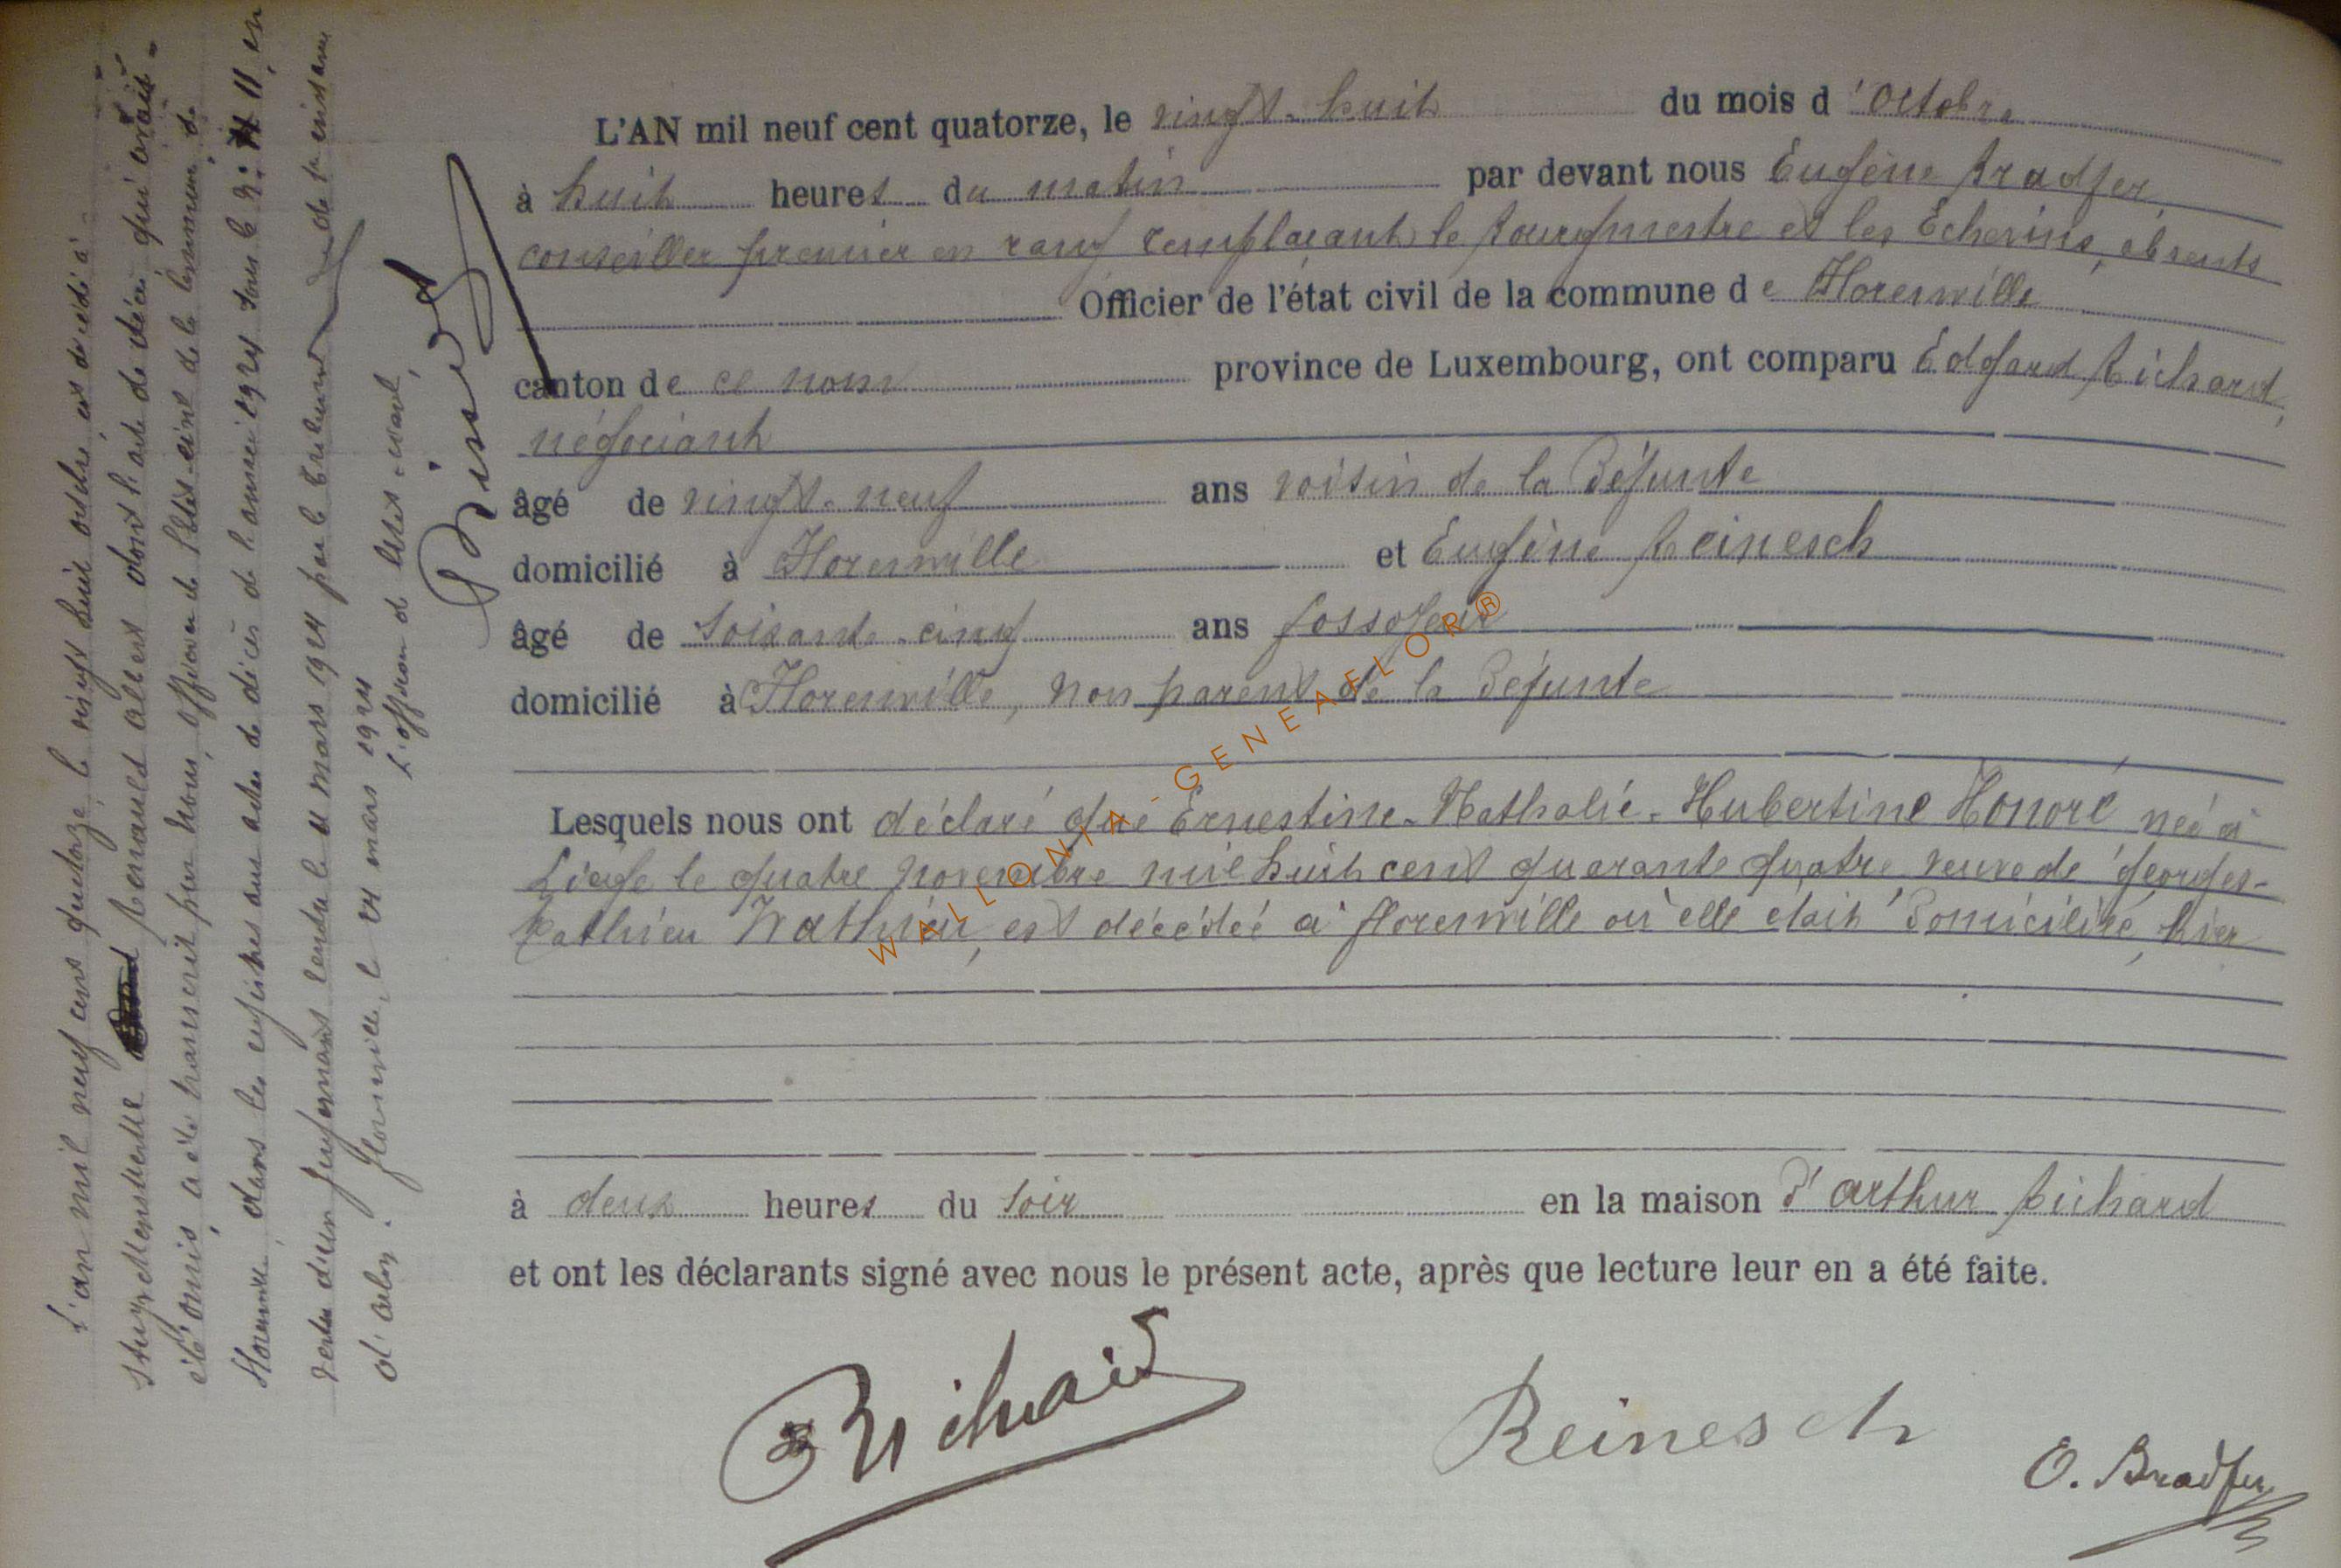 L'AN mil neuf cent quatorze, le vingt-huit du mois d'Octobre
à huit heures du matin par devant nous Eugène Bradfer,
conseiller premier en rang remplaçant le bourgmestre et les Echevins, absents
Officier de l'état civil de la commune de Florenville
canton de ce nom province de Luxembourg, ont comparu Edgard Richard,
négociant
âgé de vingt-neuf ans voisin de la Défunte
domicilié à Florenville et Eugène Reinesch
âgé de Soixante-cinq ans fossoyeur
domicilié à Florenville, non parent de la Défunte
Lesquels nous ont déclaré que Ernestine-Nathalie-Hubertine Honoré née à
Liège le quatre novembre mil huit cent quarante quatre veuve de georges-
Mathieu, est décédée à florenville où elle était Domiciliée, hier
à deux heures du soir en la maison d'arthur Richard
et ont les déclarants signé avec nous le présent acte, après que lecture leur en a été faite.
Richard
Reinesch
O. Bradfer
L'an mil neuf cent quatorze, le vingt huit octobre, est décédé à
Renauld albert dont l'acte de décès qui avait
été omis, a été transcrit par nous, officier de l'état-civil de la commune de
Florenville, dans les registres aux actes de décès de l'année 1924 sous le n: 11 en
vertu d'un jugement rendu le mars 1924 par le tribunal de 1re instance
d'arlon. florenville, le 24 mars 1924
L'officier d l'état-civil,
WALLONIA-GENEAFLOR®